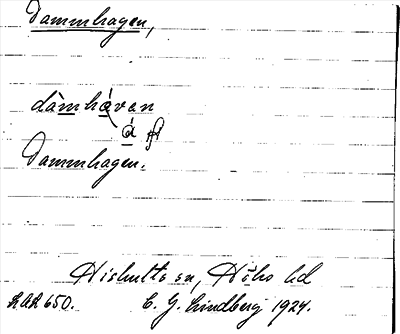 Dammhagen,
dàmhávan
á
Dammhagen.
Hishults sn, Höks hd
LAA 650. C. G. Lindberg 1924.